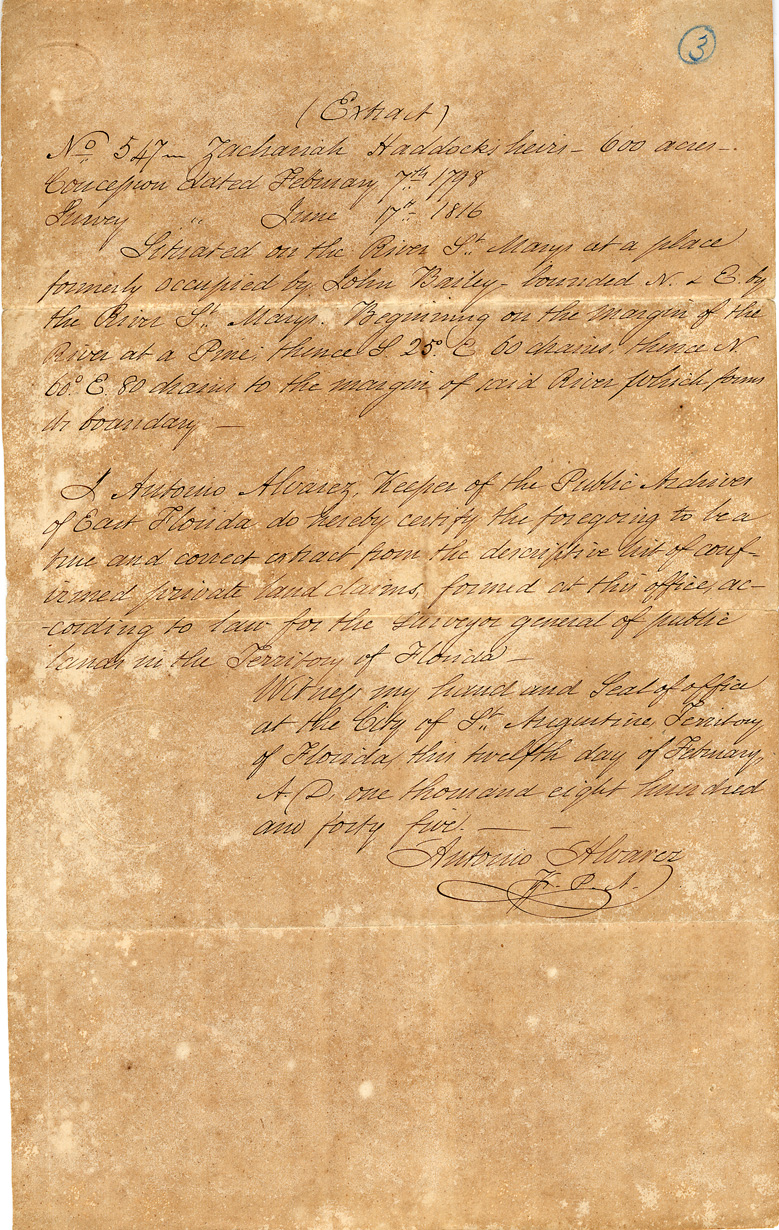 3
(Extract)
No. 547 — Zachariah Haddock's heirs — 600 acres —.
Concession dated February 7th 1798
Survey " June 17th 1816
Situated on the River St. Marys at a place
formerly occupied by John Bailey — bounded N. & E. by
the River St. Marys. Beginning on the margin of the
River at a Pine, thence S. 25° E. 60 chains, thence N.
60° E. 80 chains to the margin of said River which forms
its boundary —
I Antonio Alvarez, Keeper of the Public Archives
of East Florida do hereby certify the foregoing to be a
true and correct extract from the descriptive list of conf-
irmed private land claims, formed at this office, ac-
-cording to law for the surveyor general of public
lands in the Territory of Florida —
Witness my hand and Seal of office
at the City of St. Augustine, Territory
of Florida, this twelfth day of February,
A. D. one thousand eight hundred
and forty five. — —
Antonio Alvarez
K. P. A.